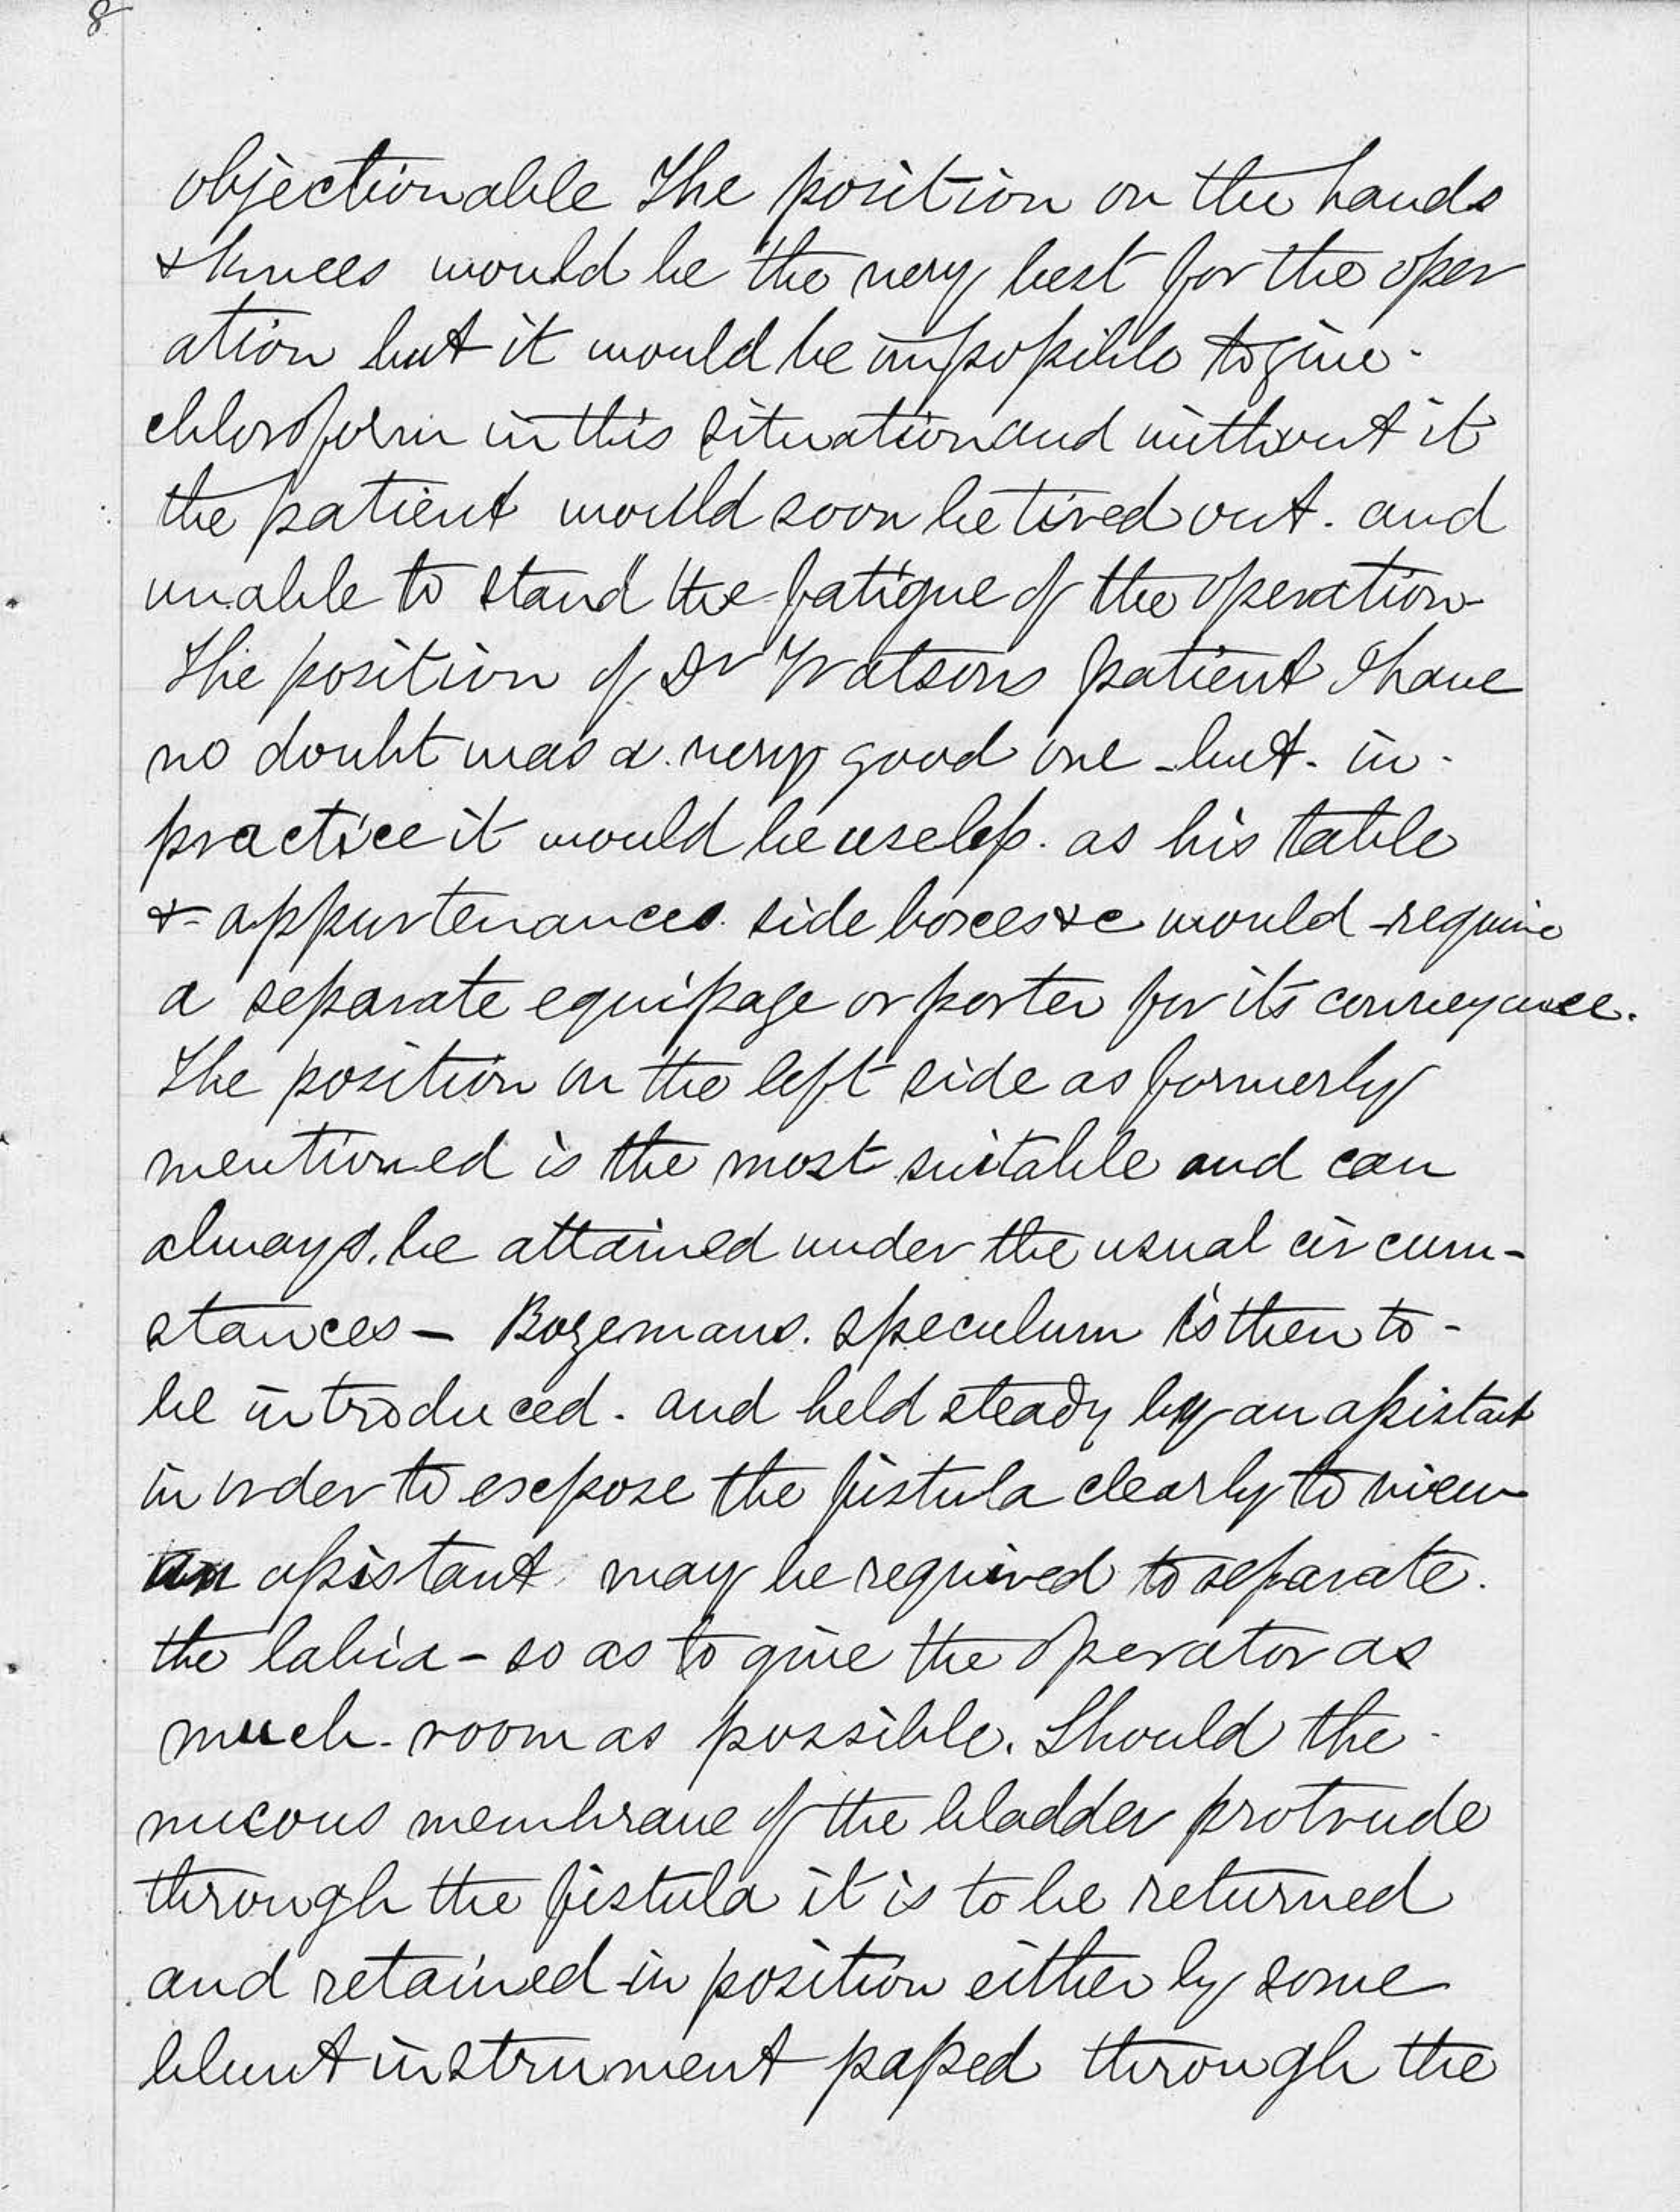 8
objectionable The position on the hands
& knees would be the very best for the oper
ation but it would be impossible to give.
chloroform in this situation and without it
the patient would soon be tired out. and
unable to stand the fatigue of the operation
The position of Dr Watsons patient I have
no doubt was a very good one - but. in.
practice it would be useless. as his table
& appurtenances. side boxes &c would require
a separate equipage or porter for its conveyance.
The position on the left side as formerly
mentioned is the most suitable and can
always. be attained under the usual circum-
stances - Bozemans. speculum is then to -
be introduced. and held steady by an assistant
in order to expose the fistula clearly to view
an assistant may be required to separate.
the labia - so as to give the operator as
much room as possible. Should the
mucous membrane of the bladder protrude
through the fistula it is to be returned
and retained in position either by some
blunt instrument passed through the